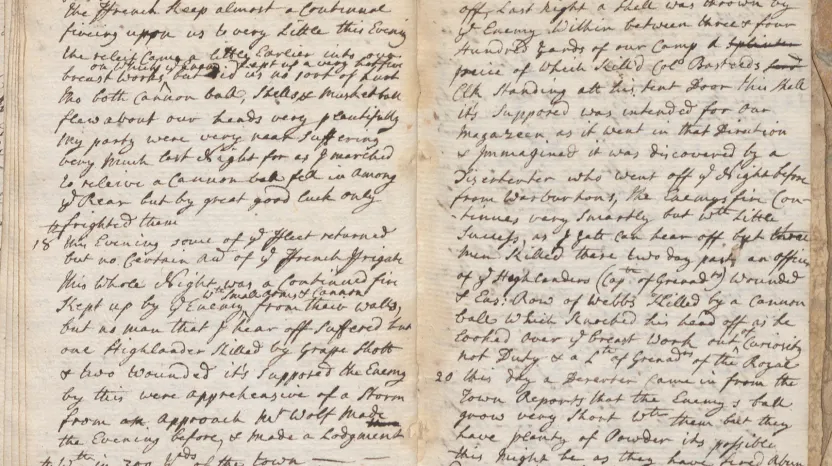 the Ffrench keep almost a Continual
fireing upon us to very Little this Evening
the releif Came a little Earlier into our
on which ye Enemy kept up a very hot fire
breast works, but did us no sort of hurt
tho both Cannon ball, Shells & Musket ball
flew about our heads very plentifully
My party were very near Suffering
very Much last Night for as I marched
to releive a Cannon ball fell in Among
ye Rear but by great good luck only
frighted them
18 this Evening some of ye Fleet returned
but no Certain of ye Ffrench Ffrigate
this whole Night was a Continued fire
wth Small arms & Cannon
Kept up by ye Enemy from their walls,
but no man that I hear off Suffered but
one Highlander Killed by Grape Shott
& two wounded it's Supposed the Enemy
by this were apprehensive of a Storm
from an Approach Mr Wolf Made
the Evening before, & made a Lodgment
wth in 200 yds of the town
off, Last Night a Shell was thrown by
ye Enemy Within between three & four
Hundred yards of our Camp A Splinter
peice of Which Kill'd Colo Basteeds
Clk Standing att his tent Door this Shell
it's Supposed was intended for our
Magazeen as it went in that Direction
& Immagined it was discovered by a
Disertenter who went off ye Night before
from Warburtons, the Enemys fire Con-
-tinues very Smartly but wth Little
Success, as I yett can hear off but three
men Killed these two day past, an officer
of ye Highlanders (Capt of Grenadrs) wounded
& Ens: Row of Webbs Killed by a Cannon
ball Which Knocked his head off as he
looked over ye breast Work out of Curiosity
not Duty & a Lt of Grenadrs of the Royal
20 this day a Deserter Came in from the
Town Reports that the Enemy's ball
grow very Short wth them but they
have plenty of Powder its possible
this Might be as they have fired